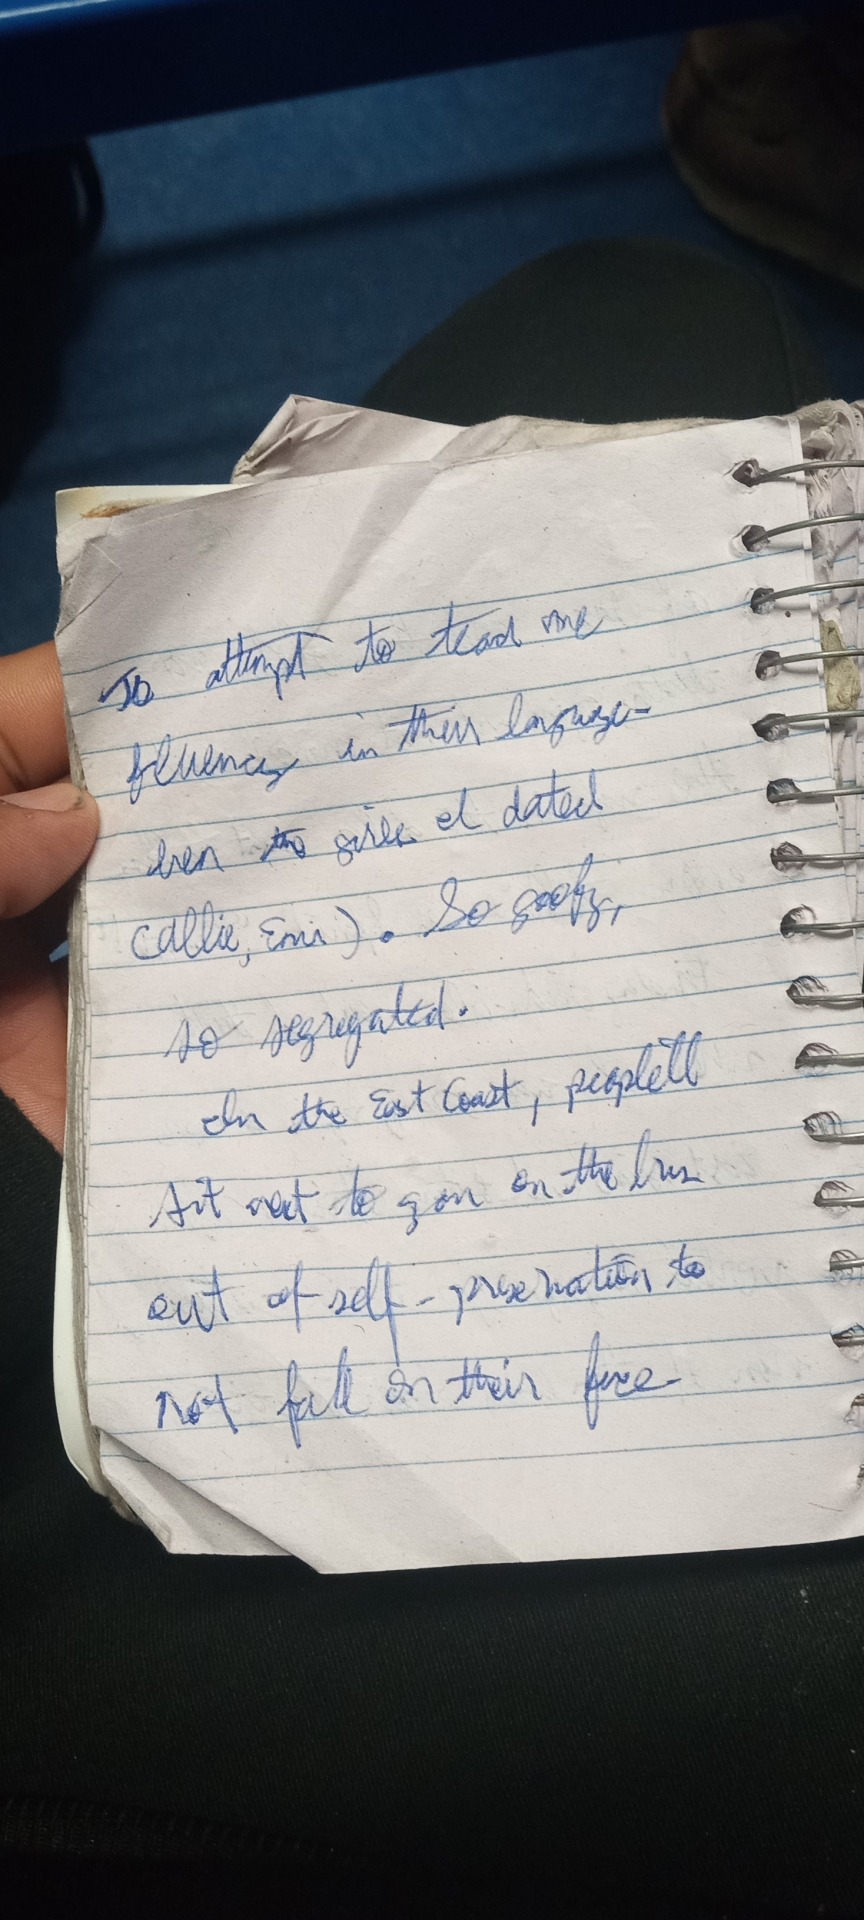 To attempt to teach me
fluency in their language-
even the girls I dated
(Callie, Emi). So goofy,
so segregated.
In the East Coast, people'll
sit next to you on the bus
out of self-preservation to
not fall on their face-